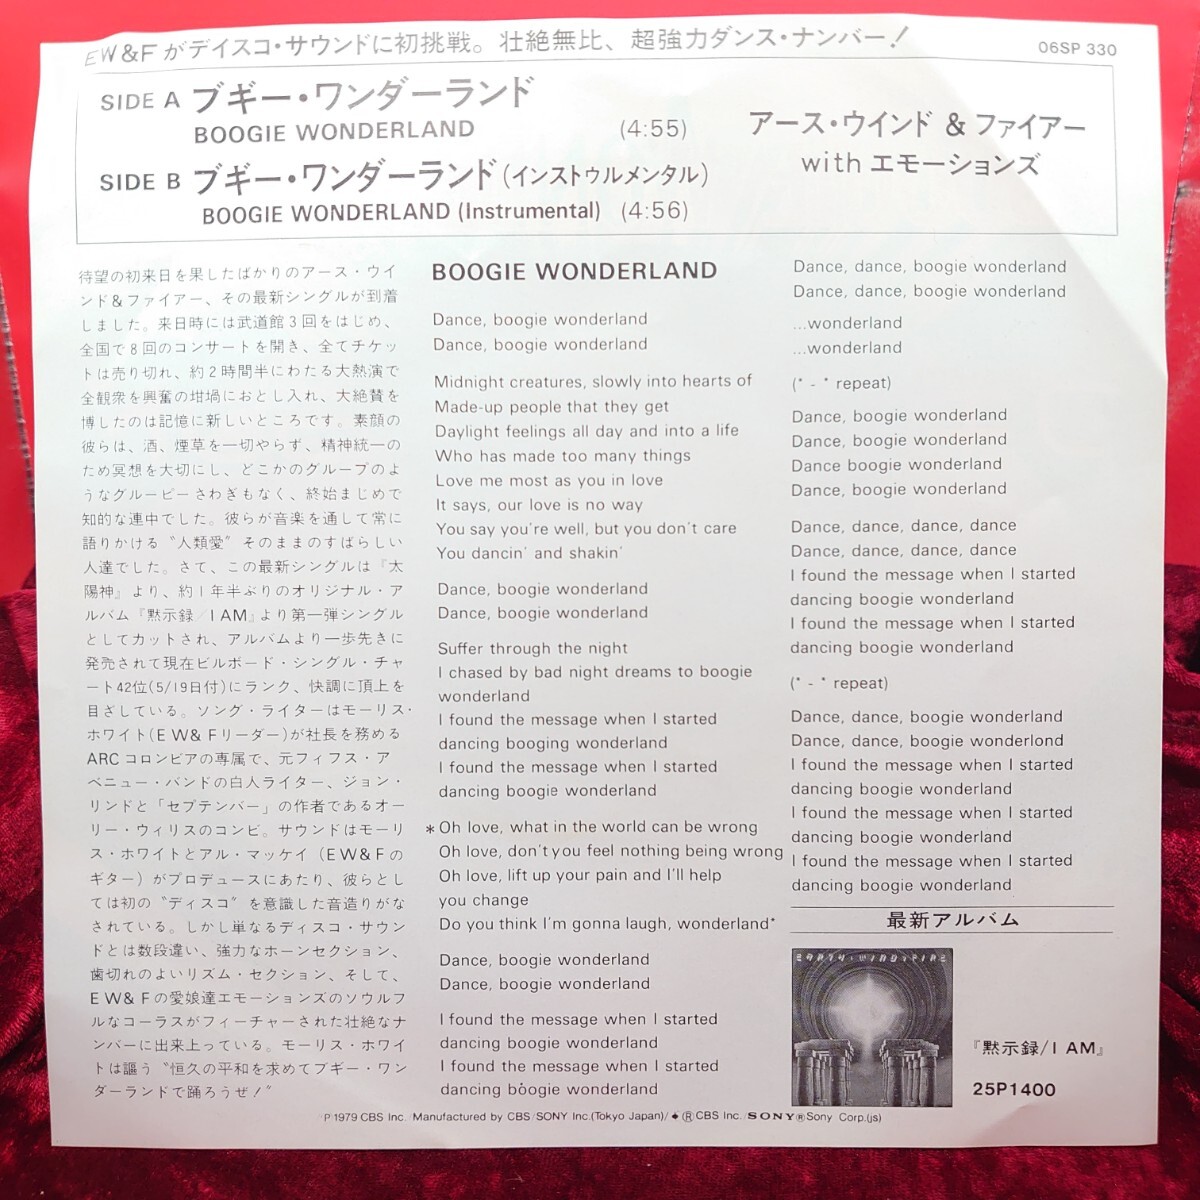 EW&Fがデイスコ・サウンドに初挑戦。壮絶無比、超強力ダンス・ナンバー!
06SP 330
SIDE A ブギー・ワンダーランド
BOOGIE WONDERLAND (4:55)
SIDE B ブギー・ワンダーランド(インストゥルメンタル)
BOOGIE WONDERLAND (Instrumental) (4:56)
アース・ウインド & ファイアー
with エモーションズ
待望の初来日を果したばかりのアース・ウイ
ンド&ファイアー、その最新シングルが到着
しました。来日時には武道館3回をはじめ、
全国で8回のコンサートを開き、全てチケッ
トは売り切れ、約2時間半にわたる大熱演で
全観衆を興奮の坩堝におとし入れ、大絶賛を
博したのは記憶に新しいところです。素顔の
彼らは、酒、煙草を一切やらず、精神統一の
ため冥想を大切にし、どこかのグループのよ
うなグルーピーさわぎもなく、終始まじめで
知的な連中でした。彼らが音楽を通して常に
語りかける〝人類愛〟そのままのすばらしい
人達でした。さて、この最新シングルは『太
陽神』より、約1年半ぶりのオリジナル・ア
ルバム『黙示録/I AM』より第一弾シングル
としてカットされ、アルバムより一歩先きに
発売されて現在ビルボード・シングル・チャ
ート42位(5/19日付)にランク、快調に頂上を
目ざしている。ソング・ライターはモーリス・
ホワイト(EW&Fリーダー)が社長を務める
ARCコロンビアの専属で、元フィフス・ア
ベニュー・バンドの白人ライター、ジョン・
リンドと「セプテンバー」の作者であるオー
リー・ウィリスのコンビ。サウンドはモーリ
ス・ホワイトとアル・マッケイ(EW&Fの
ギター)がプロデュースにあたり、彼らとし
ては初の〝ディスコ〟を意識した音造りがな
されている。しかし単なるディスコ・サウン
ドとは数段違い、強力なホーンセクション、
歯切れのよいリズム・セクション、そして、
EW&Fの愛娘達エモーションズのソウルフ
ルなコーラスがフィーチャーされた壮絶なナ
ンバーに出来上っている。モーリス・ホワイ
トは謳う〝恒久の平和を求めてブギー・ワン
ダーランドで踊ろうぜ!〟
BOOGIE WONDERLAND
Dance, boogie wonderland
Dance, boogie wonderland
Midnight creatures, slowly into hearts of
Made-up people that they get
Daylight feelings all day and into a life
Who has made too many things
Love me most as you in love
It says, our love is no way
You say you're well, but you don't care
You dancin' and shakin'
Dance, boogie wonderland
Dance, boogie wonderland
Suffer through the night
I chased by bad night dreams to boogie
wonderland
I found the message when I started
dancing booging wonderland
I found the message when I started
dancing boogie wonderland
*Oh love, what in the world can be wrong
Oh love, don't you feel nothing being wrong
Oh love, lift up your pain and I'll help
you change
Do you think I'm gonna laugh, wonderland*
Dance, boogie wonderland
Dance, boogie wonderland
I found the message when I started
dancing boogie wonderland
I found the message when I started
dancing boogie wonderland
Dance, dance, boogie wonderland
Dance, dance, boogie wonderland
...wonderland
...wonderland
(* - * repeat)
Dance, boogie wonderland
Dance, boogie wonderland
Dance boogie wonderland
Dance, boogie wonderland
Dance, dance, dance, dance
Dance, dance, dance, dance
I found the message when I started
dancing boogie wonderland
I found the message when I started
dancing boogie wonderland
(* - * repeat)
Dance, dance, boogie wonderland
Dance, dance, boogie wonderlond
I found the message when I started
dancing boogie wonderland
I found the message when I started
dancing boogie wonderland
I found the message when I started
dancing boogie wonderland
最新アルバム
EARTH, WIND & FIRE
『黙示録/I AM』
25P1400
℗1979 CBS Inc. Manufactured by CBS/SONY Inc.(Tokyo Japan)/ ® CBS Inc. SONY ® Sony Corp.(js)